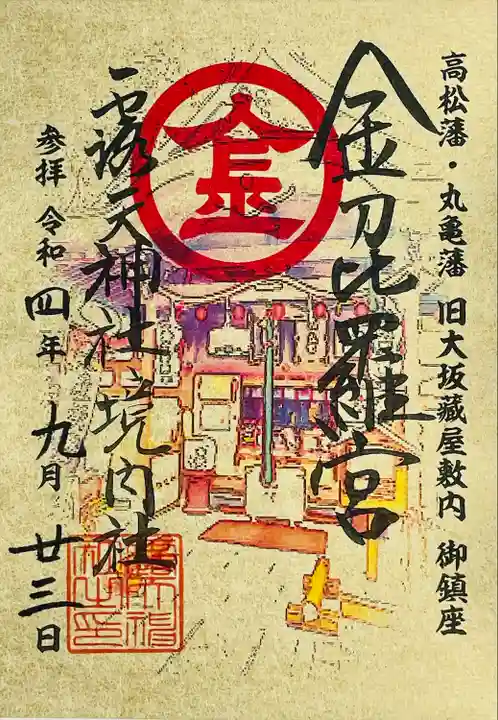 高松藩・丸亀藩 旧大坂藏屋敷内 御鎮座
金刀比羅宮
金
露天神社境内社
参拝 令和四年九月廿三日